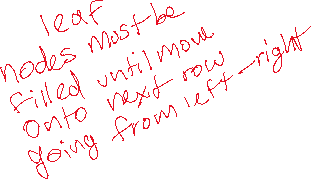 leaf
nodes must be
filled until move
onto next row
going from left-right